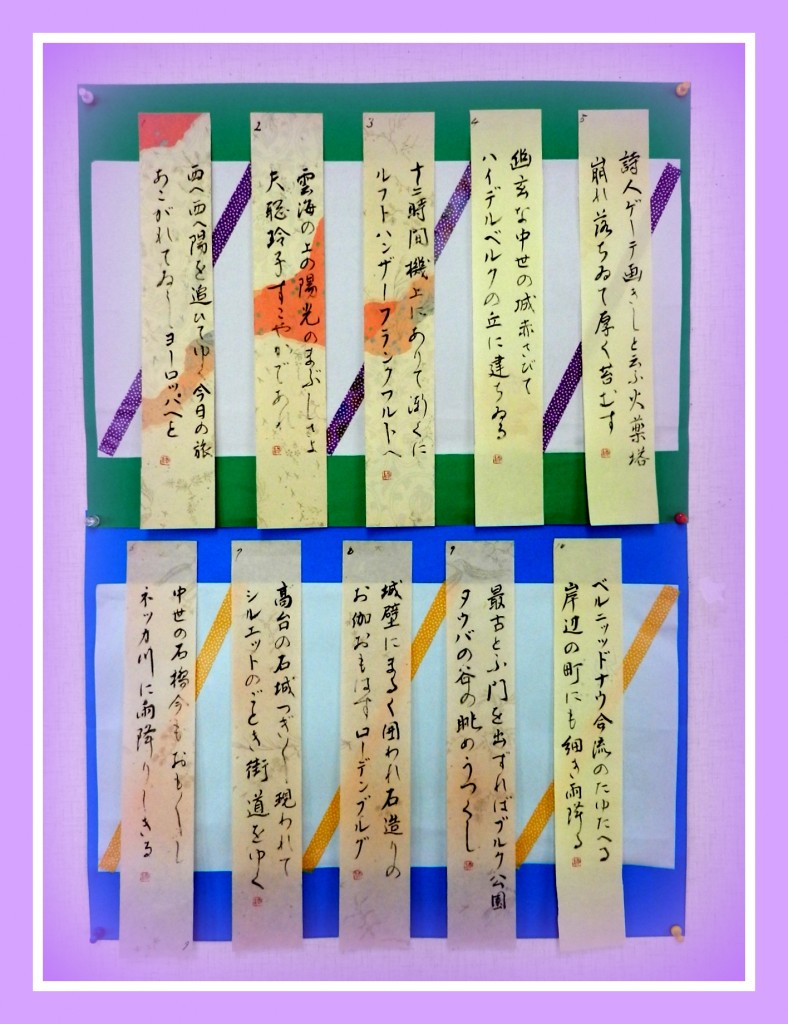 1
西へ西へ陽を追ひてゆく今日の旅
あこがれてゐしヨーロッパへと
2
雲海の上の陽光のまぶしさよ
夫聡玲子すこやかであれ
3
十二時間機上にありて漸くに
ルフトハンザーフランクフルトへ
4
幽玄な中世の城赤さびて
ハイデルベルクの丘に建ちゐる
5
詩人ゲーテ画きしと云ふ火薬塔
崩れ落ちゐて厚く苔むす
中世の石橋今もおもしし
ネッカ川に雨降りしきる
7
高台の石城つぎし現われて
シルエットのごとき街道をゆく
8
城壁にまるく囲われ石造りの
お伽おもはすローデンブルグ
9
最古とふ門を出ずればブルク公園
タウバの谷の眺めうつくし
10
ベルニッツドナウ合流のたゆたへる
岸辺の町にも細き雨降る